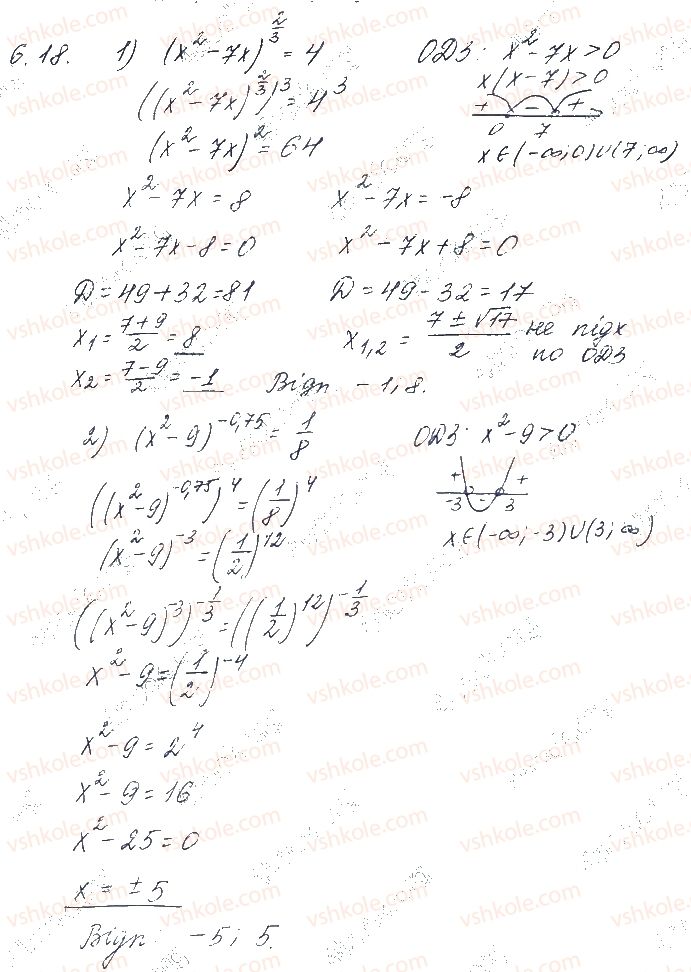 6.18. 1) (x² - 7x)^(2/3) = 4 ОДЗ: x² - 7x > 0
((x² - 7x)^(2/3))³ = 4³ x(x - 7) > 0
+ - +
0 7
(x² - 7x)² = 64 x ∈ (-∞; 0) ∪ (7; ∞)
x² - 7x = 8 x² - 7x = -8
x² - 7x - 8 = 0 x² - 7x + 8 = 0
D = 49 + 32 = 81 D = 49 - 32 = 17
x₁ = (7+9)/2 = 8 x₁,₂ = (7 ± √17)/2 не підх по ОДЗ
x₂ = (7-9)/2 = -1 Відп -1; 8.
2) (x² - 9)^(-0,75) = 1/8 ОДЗ: x² - 9 > 0
+ - +
-3 3
((x² - 9)^(-0,75))⁴ = (1/8)⁴
(x² - 9)^(-3) = (1/2)^12 x ∈ (-∞; -3) ∪ (3; ∞)
((x² - 9)^(-3))^(-1/3) = ((1/2)^12)^(-1/3)
x² - 9 = (1/2)^(-4)
x² - 9 = 2⁴
x² - 9 = 16
x² - 25 = 0
x = ± 5
Відп -5; 5.
vshkole.com